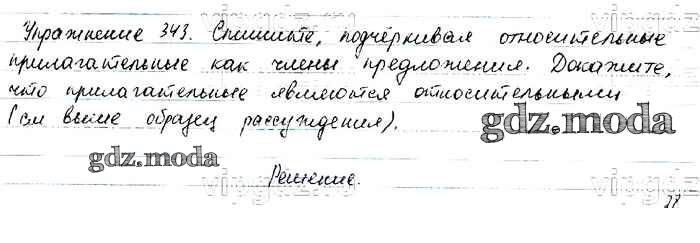 Упражнение 343. Спишите, подчёркивая относительные
прилагательные как члены предложения. Докажите,
что прилагательные являются относительными
(см выше образец рассуждения).
gdz.moda
gdz.moda
Решение.